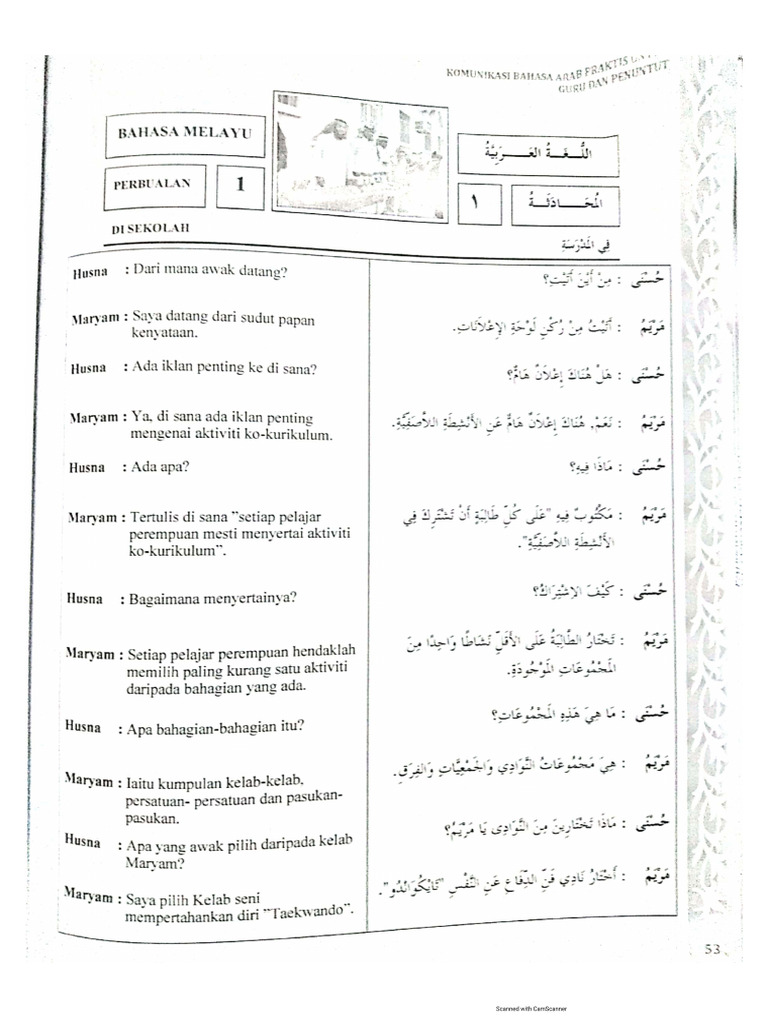 KOMUNIKASI BAHASA ARAB FRAKTIS
GURU DAN PENUNTUT
BAHASA MELAYU
PERBUALAN
1
DI SEKOLAH
اللُّـغَـةُ العَـــرَبِيَّةُ
١
المُحَـــادَثَـــةُ
فِي المَدْرَسَةِ
Husna : Dari mana awak datang?
Maryam : Saya datang dari sudut papan
kenyataan.
Husna : Ada iklan penting ke di sana?
Maryam : Ya, di sana ada iklan penting
mengenai aktiviti ko-kurikulum.
Husna : Ada apa?
Maryam : Tertulis di sana "setiap pelajar
perempuan mesti menyertai aktiviti
ko-kurikulum".
Husna : Bagaimana menyertainya?
Maryam : Setiap pelajar perempuan hendaklah
memilih paling kurang satu aktiviti
daripada bahagian yang ada.
Husna : Apa bahagian-bahagian itu?
Maryam : Iaitu kumpulan kelab-kelab,
persatuan- persatuan dan pasukan-
pasukan.
Husna : Apa yang awak pilih daripada kelab
Maryam?
Maryam : Saya pilih Kelab seni
mempertahankan diri "Taekwando".
حُسْنَى : مِنْ أَيْنَ أَتَيْتِ؟
مَرْيَمُ : أَتَيْتُ مِنْ رُكْنِ لَوْحَةِ الإِعْلَانَاتِ.
حُسْنَى : هَلْ هُنَاكَ إِعْلَانٌ هَامٌّ؟
مَرْيَمُ : نَعَمْ, هُنَاكَ إِعْلَانٌ هَامٌّ عَنِ الأَنْشِطَةِ اللاَّصَفِّيَّةِ.
حُسْنَى : مَاذَا فِيهِ؟
مَرْيَمُ : مَكْتُوبٌ فِيهِ "عَلَى كُلِّ طَالِبَةٍ أَنْ تَشْتَرِكَ فِي
الأَنْشِطَةِ اللاَّصَفِّيَّةِ".
حُسْنَى : كَيْفَ الاِشْتِرَاكُ؟
مَرْيَمُ : تَخْتَارُ الطَّالِبَةُ عَلَى الأَقَلِّ نَشَاطًا وَاحِدًا مِنَ
المَجْمُوعَاتِ المَوْجُودَةِ.
حُسْنَى : مَا هِيَ هَذِهِ المَجْمُوعَاتِ؟
مَرْيَمُ : هِيَ مَجْمُوعَاتُ النَّوَادِي وَالجَمْعِيَّاتِ وَالفِرَقِ.
حُسْنَى : مَاذَا تَخْتَارِينَ مِنَ النَّوَادِى يَا مَرْيَمُ؟
مَرْيَمُ : أَخْتَارُ نَادِي فَنِّ الدِّفَاعِ عَنِ النَّفْسِ "تَايْكُوَانْدُو".
53
Scanned with CamScanner